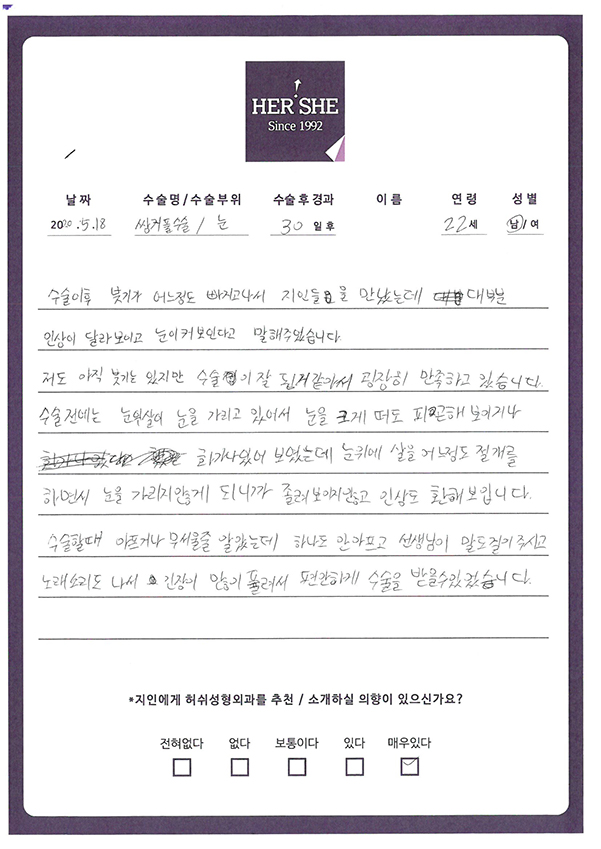 HER SHE
Since 1992
날짜 수술명/수술부위 수술후경과 이름 연령 성별
2020.5.18 쌍커풀수술 / 눈 30일후 22세 남/여
수술이후 붓기가 어느정도 빠지고나서 지인들을 만났는데 대부분
인상이 달라보이고 눈이커보인다고 말해주었습니다.
저도 아직 붓기는 있지만 수술이 잘 된거같아서 굉장히 만족하고 있습니다.
수술전에는 눈위살이 눈을 가리고 있어서 눈을 크게 떠도 피곤해보이거나
화가나있어 보였는데 눈위에 살을 어느정도 절개를
하면서 눈을 가리지않게 되니까 졸려보이지않고 인상도 환해보입니다.
수술할때 아프거나 무서울줄 알았는데 하나도 안아프고 선생님이 말도걸어주시고
노래소리도 나서 긴장이 많이 풀려서 편안하게 수술을 받을수있었습니다.
*지인에게 허쉬성형외과를 추천 / 소개하실 의향이 있으신가요?
전혀없다 없다 보통이다 있다 매우있다